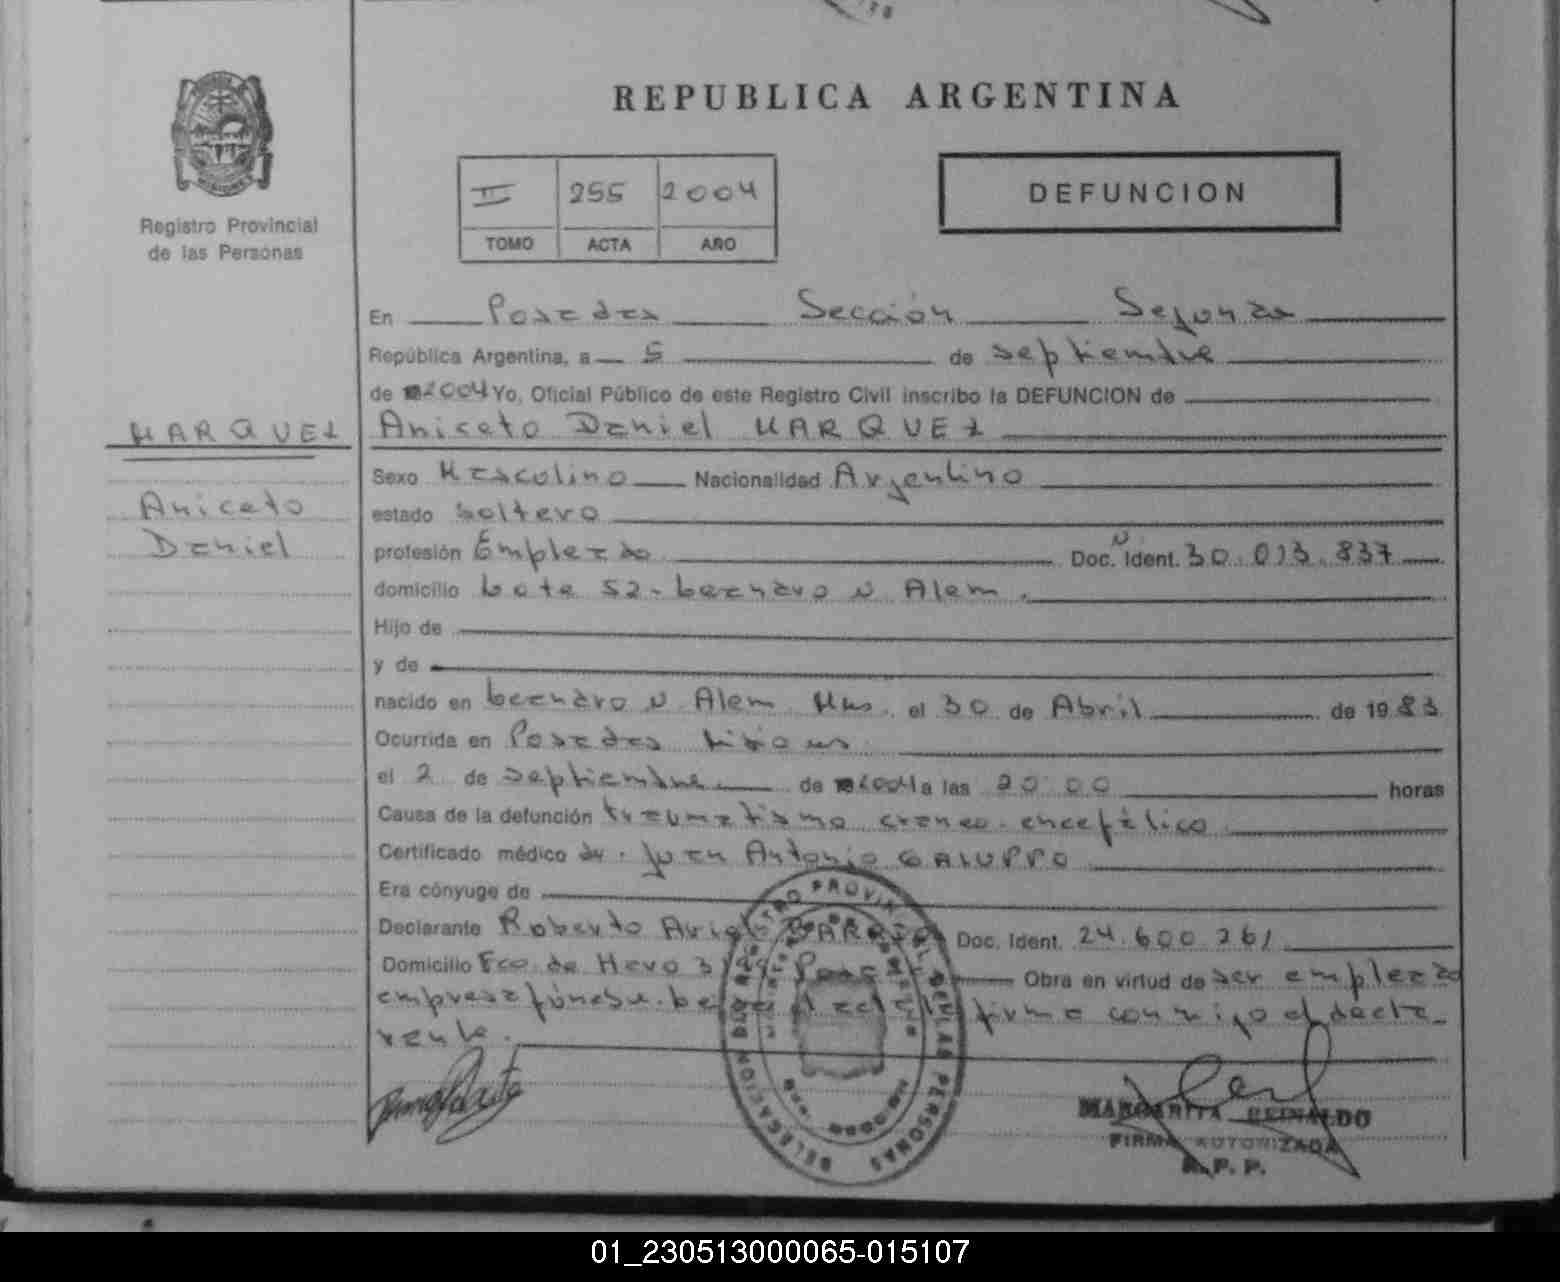 REPUBLICA ARGENTINA
III 255 2004
TOMO ACTA AÑO
DEFUNCION
Registro Provincial
de las Personas
En Posadas Sección Segunda
República Argentina, a 5 de septiembre
de 2004 Yo, Oficial Público de este Registro Civil inscribo la DEFUNCION de
MARQUEZ
Aniceto Daniel MARQUEZ
Sexo Masculino Nacionalidad Argentino
Aniceto
Daniel
estado soltero
profesión Empleado Doc. N Ident. 30.013.837
domicilio Lote 52 - Leandro N Alem.
Hijo de
y de
nacido en Leandro N Alem Mns. el 30 de Abril de 1983
Ocurrida en Posadas Misiones
el 2 de septiembre de 2004 a las 20:00 horas
Causa de la defunción traumatismo craneo-encefálico
Certificado médico dr. Juan Antonio GALUPPO
Era cónyuge de
Declarante Roberto Doc. Ident. 24.600.261
Domicilio Fco. de Haro Obra en virtud de ser empleado
empresa fúnebre. firma conmigo el decla-
rante.
REGISTRO PROVINCIAL DE LAS PERSONAS
DELEGACION
MARGARITA REINALDO
FIRMA AUTORIZADA
R. P. P.
01_230513000065-015107